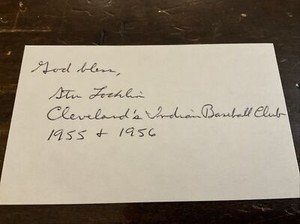 God bless,
Stu Locklin
Cleveland's Indian Baseball Club
1955 & 1956